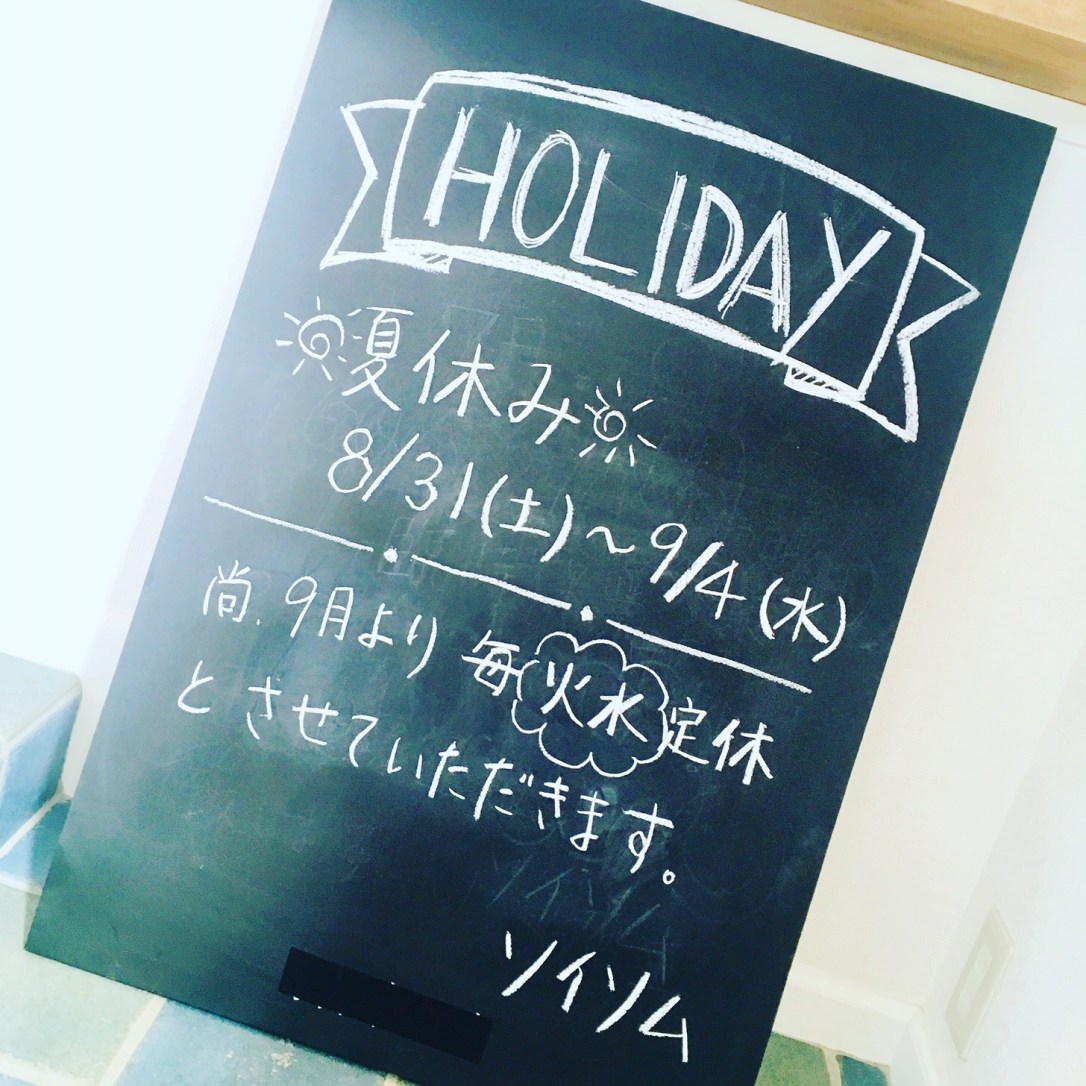 HOLIDAY
夏休み
8/31(土)~9/4(水)
尚、9月より 毎火水定休
とさせていただきます。
ソイソム